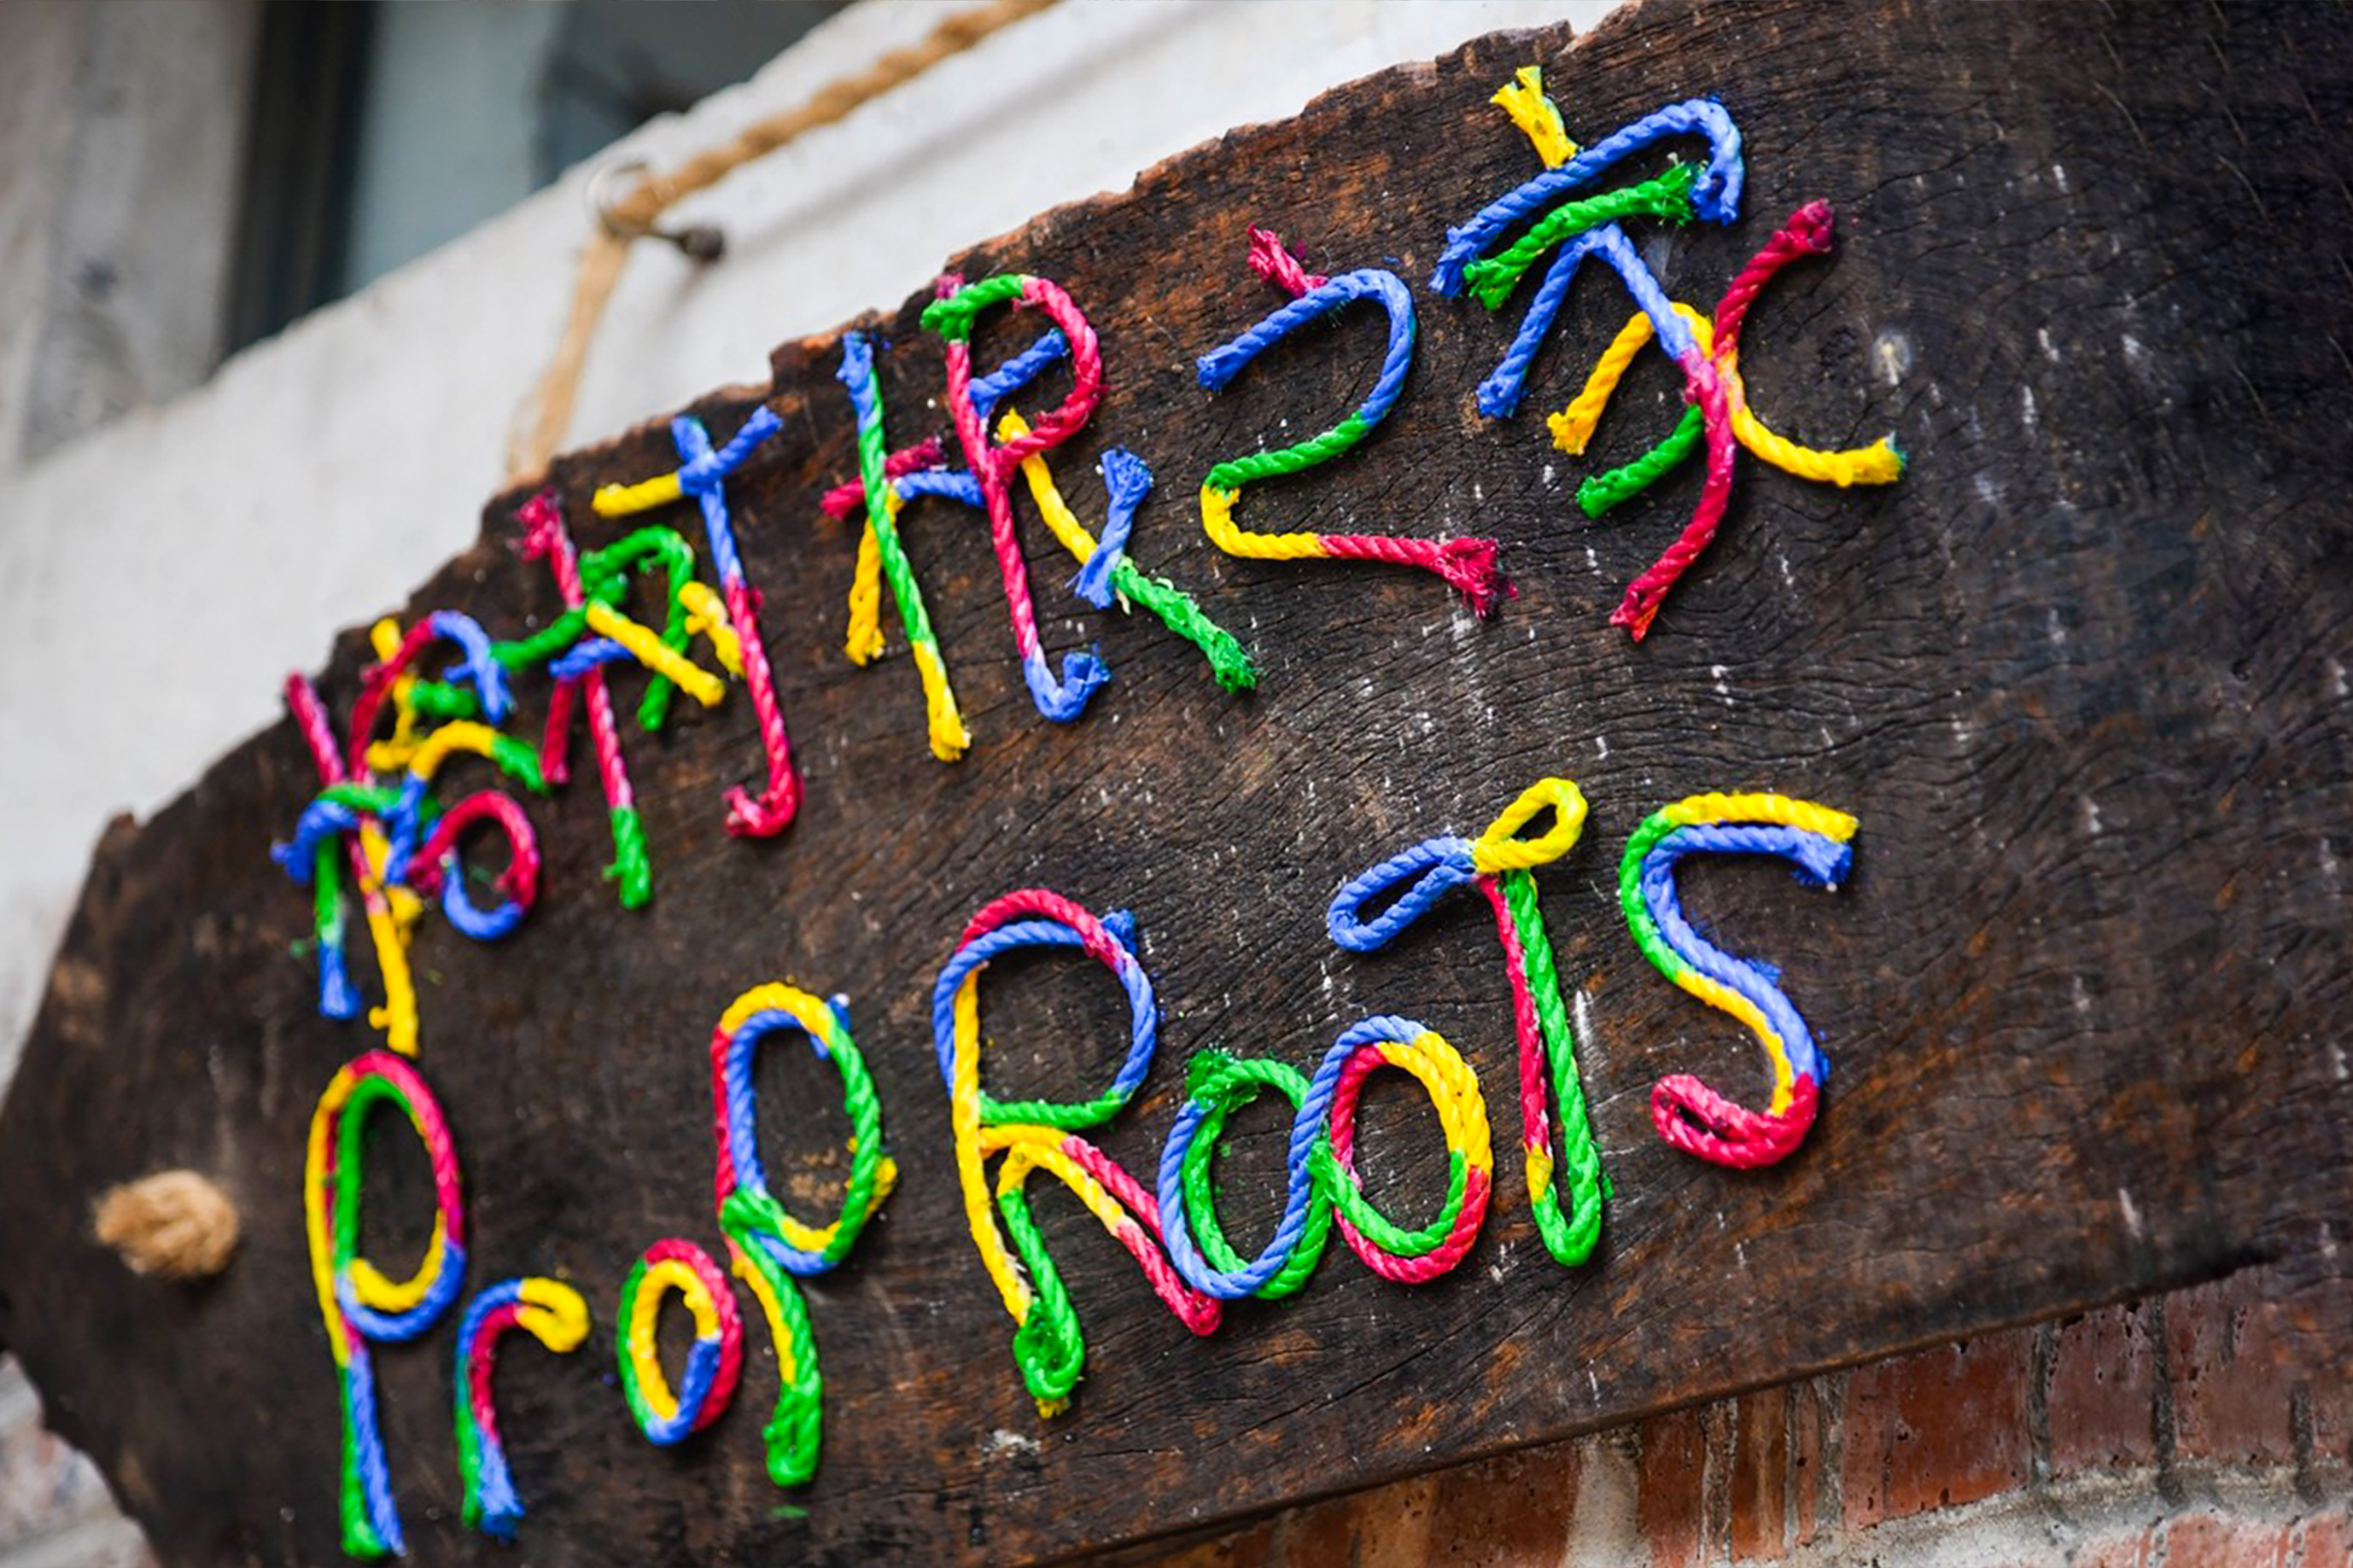 榕树根之家
ProP RooTS